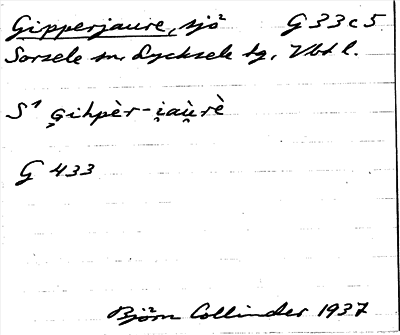 Gipperjaure, sjö² G 33 c 5
Sorsele sn, Lycksele tg, Vbt l.
S¹ g̣ihpèr-i̯au̯rè
G 433
Björn Collinder 1937